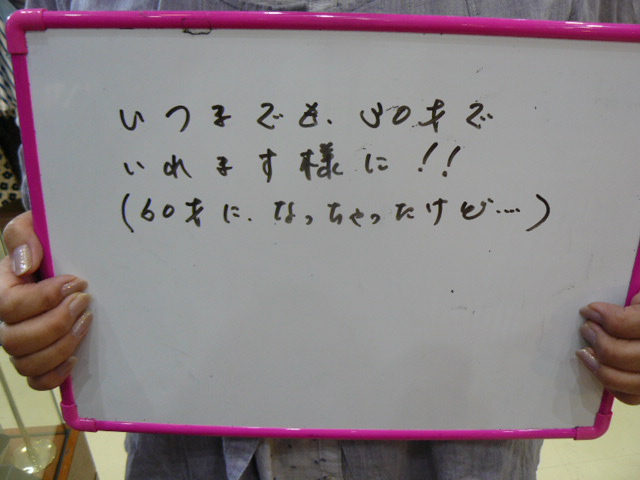 いつまでも、30才で
いれます様に!!
(60才に、なっちゃったけど….)